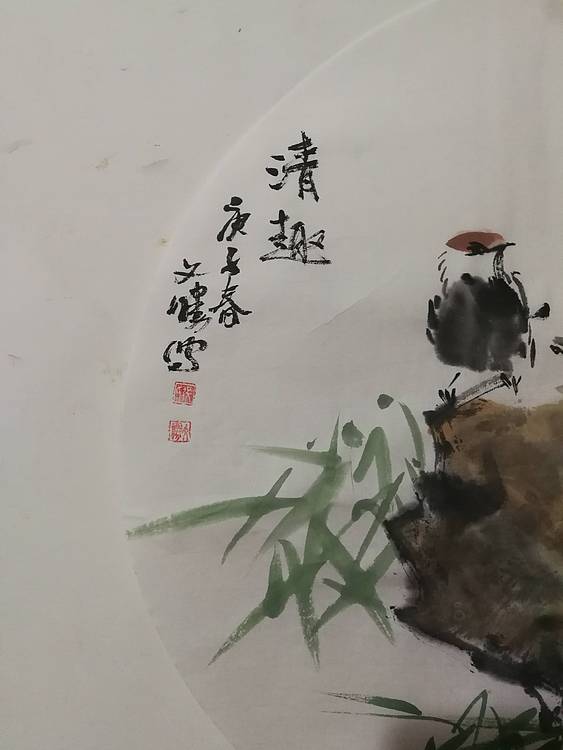 清趣
庚子春
文健写